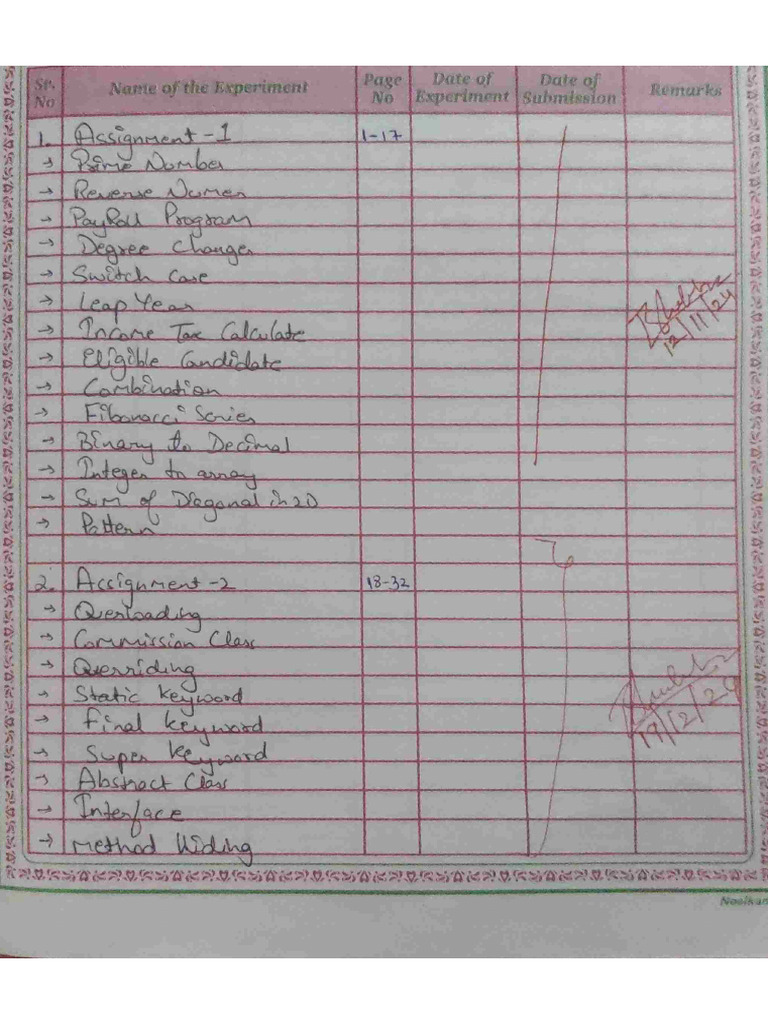 Sr. No Name of the Experiment Page No Date of Experiment Date of Submission Remarks
1. Assignment-1 1-17
→ Prime Number
→ Reverse Numer
→ PayRoll Program
→ Degree Changer
→ Switch Case
→ Leap Year
12/11/24
→ Income Tax Calculate
→ Eligible Candidate
→ Combination
→ Fibonacci Series
→ Binary to Decimal
→ Integer to array
→ Sum of Diagonal in 2D
→ Pattern
2. Assignment-2 18-32
→ Overloading
→ Commission Class
→ Overriding
→ Static Keyword
→ final keyword
→ Super keyword
→ Abstract Class
→ Interface
→ Method Hiding